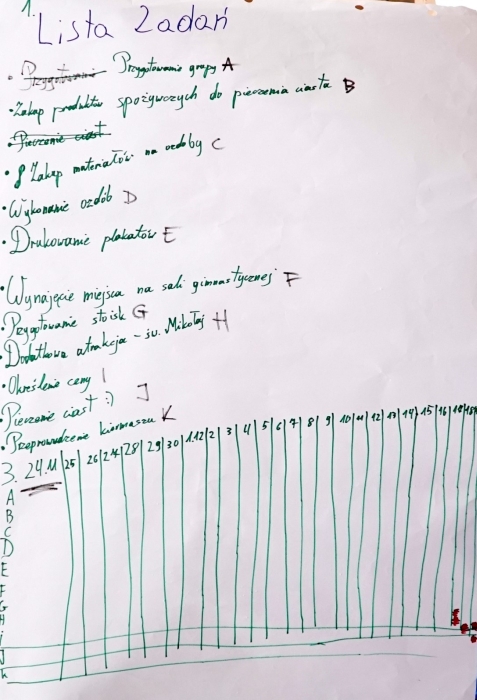 1.
Lista Zadań
• Przygotowanie Przygotowanie grupy A
• Zakup produktów spożywczych do pieczenia ciasta B
• Pieczenie ciast
• Zakup materiałów na ozdoby C
• Wykonanie ozdób D
• Drukowanie plakatów E
• Wynajęcie miejsca na sali gimnastycznej F
• Przygotowanie stoisk G
• Dodatkowa atrakcja - św. Mikołaj H
• Określenie ceny I
Pieczenie ciast :) J
• Przeprowadzenie kiermaszu K
3. 24.11 25 26 27 28 29 30 1.12 2 3 4 5 6 7 8 9 10 11 12 13 14 15 16
A
B
C
D
E
F
G
H
i
J
k